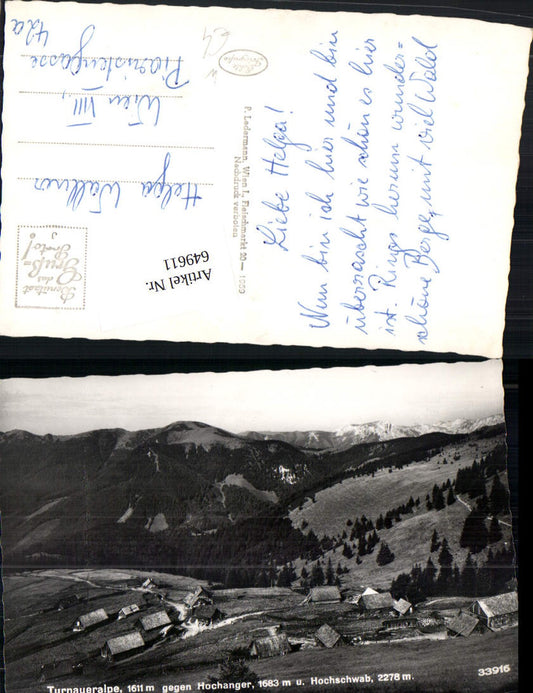 Liebe Helga!
Nun bin ich hier und bin
überrascht wie schön es hier
ist. Rings herum wunder=
schöne Berge mit viel Wald
P. Ledermann, Wien I., Fleischmarkt 20 — 1999
Nachdruck verboten
Helga Wallner
Wien VIII,
Piaristengasse
42a
Benützt
das
Gruß=
Porto!
Artikel Nr.
649611
Turnaueralpe, 1611 m gegen Hochanger, 1683 m u. Hochschwab, 2278 m.
33916